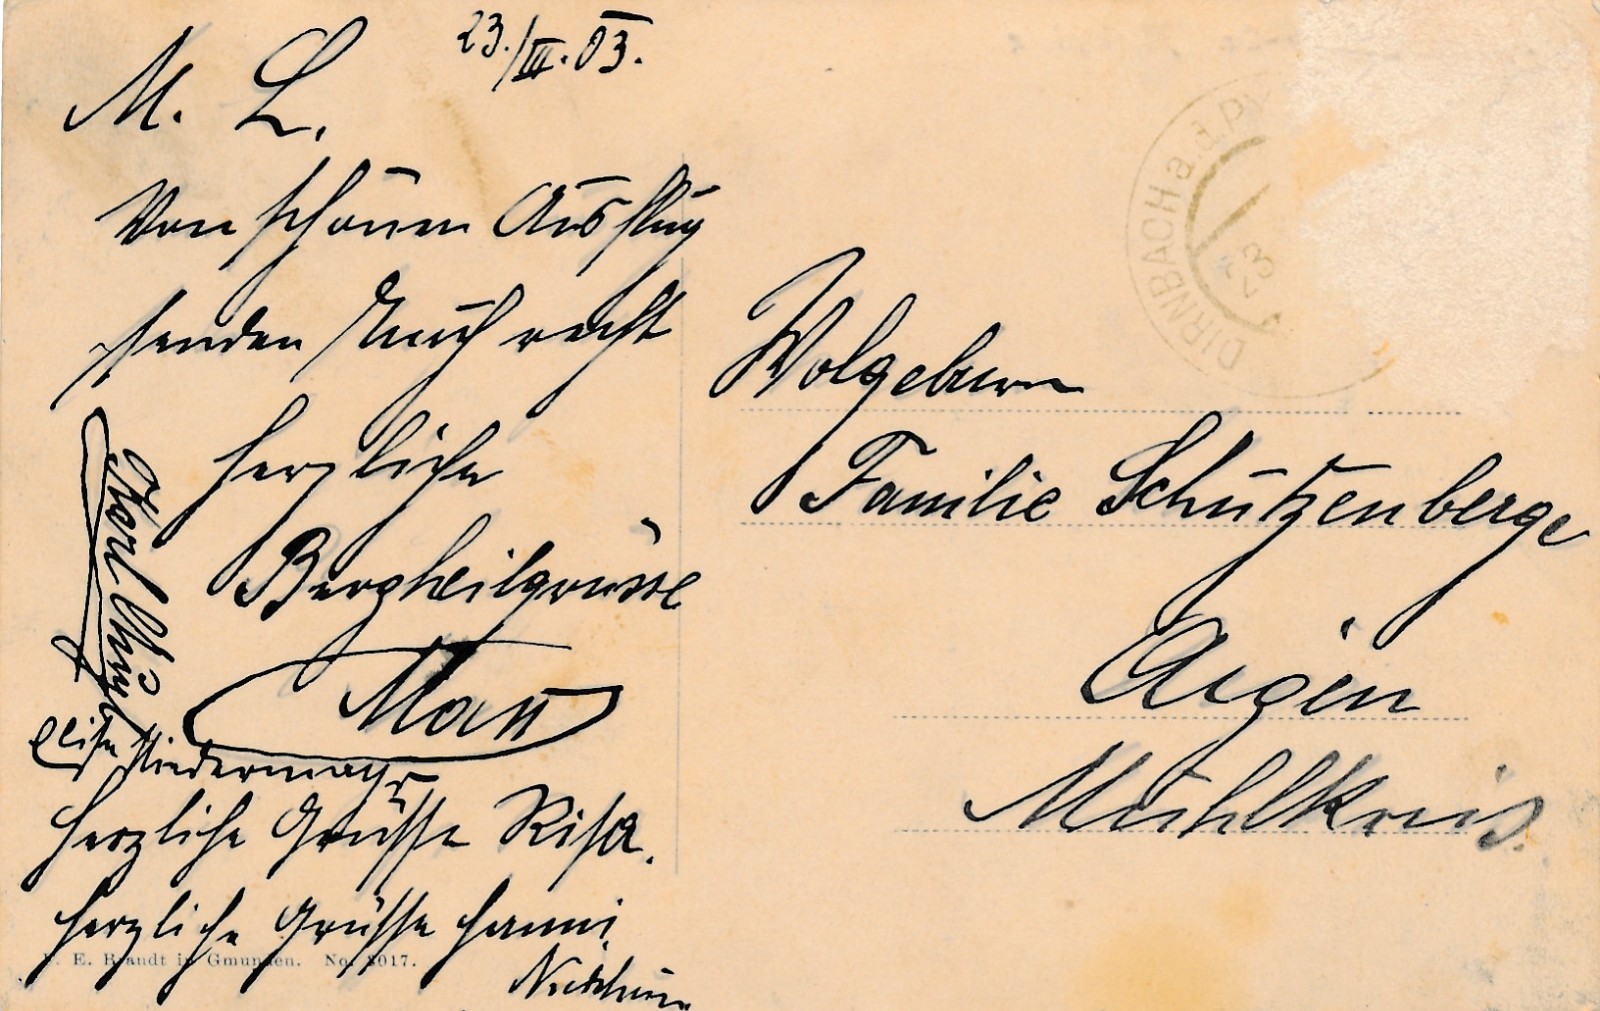 23./III. 03.
M. L.
Von schönen Ausflug
senden Euch recht
herzliche
Bergheilgrüsse
Karl
Elise Niedermayr
Herzliche Grüsse Risa.
Herzliche Grüsse Hanni.
E. Brandt in Gmunden. No. 2017.
DIRNBACH a.d. PY
23
Wolgeborn
Familie Schützenberge
Aigen
Mühlkreis.